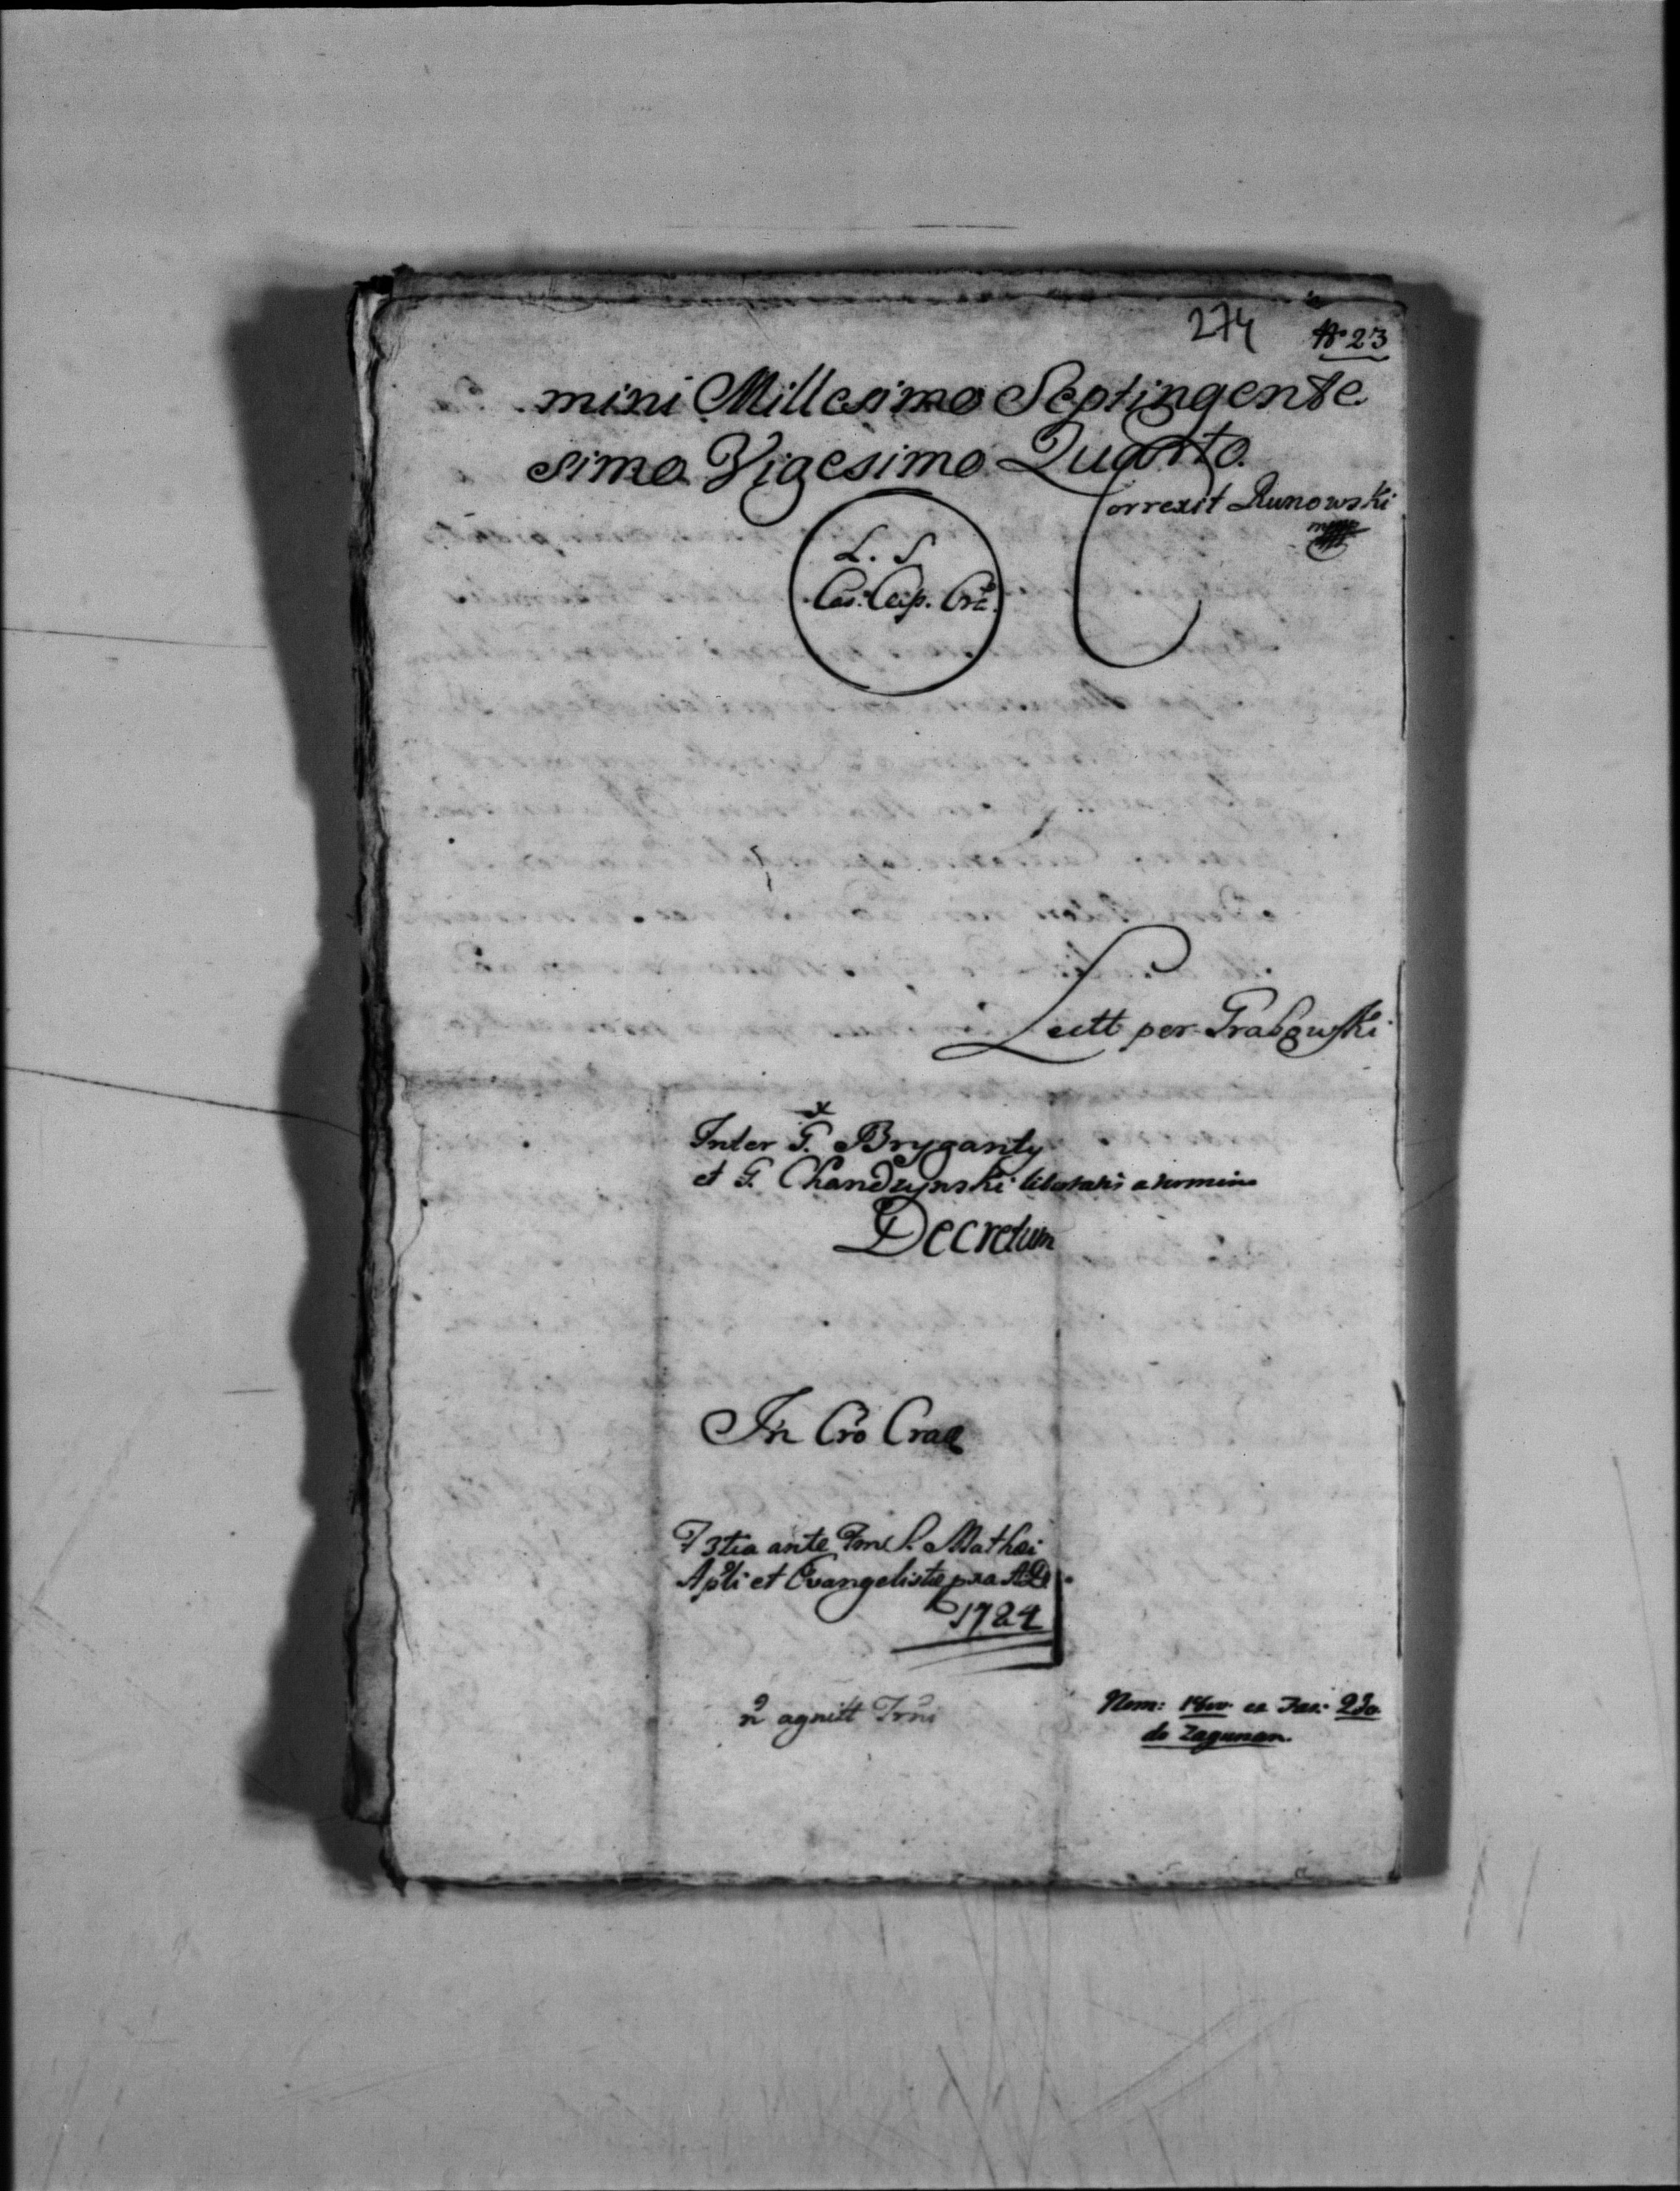 274 No 23
mini Millesimo Septingente
simo Vigesimo Quarto.
Correxit Runowski
mpp
L. S
Cas. Cap. Crć.
Lectt per Grabowski
Inter G. Bryganty
et G. Chandzynski libertatis a termino
Decretum
In Cro Crac
F 3tia ante Fm S. Mathei
Apli et Evangelistæ pxa A D
1724
ñ agnitt Trni
Nom: ex Fas: 2do
do Zagunan.